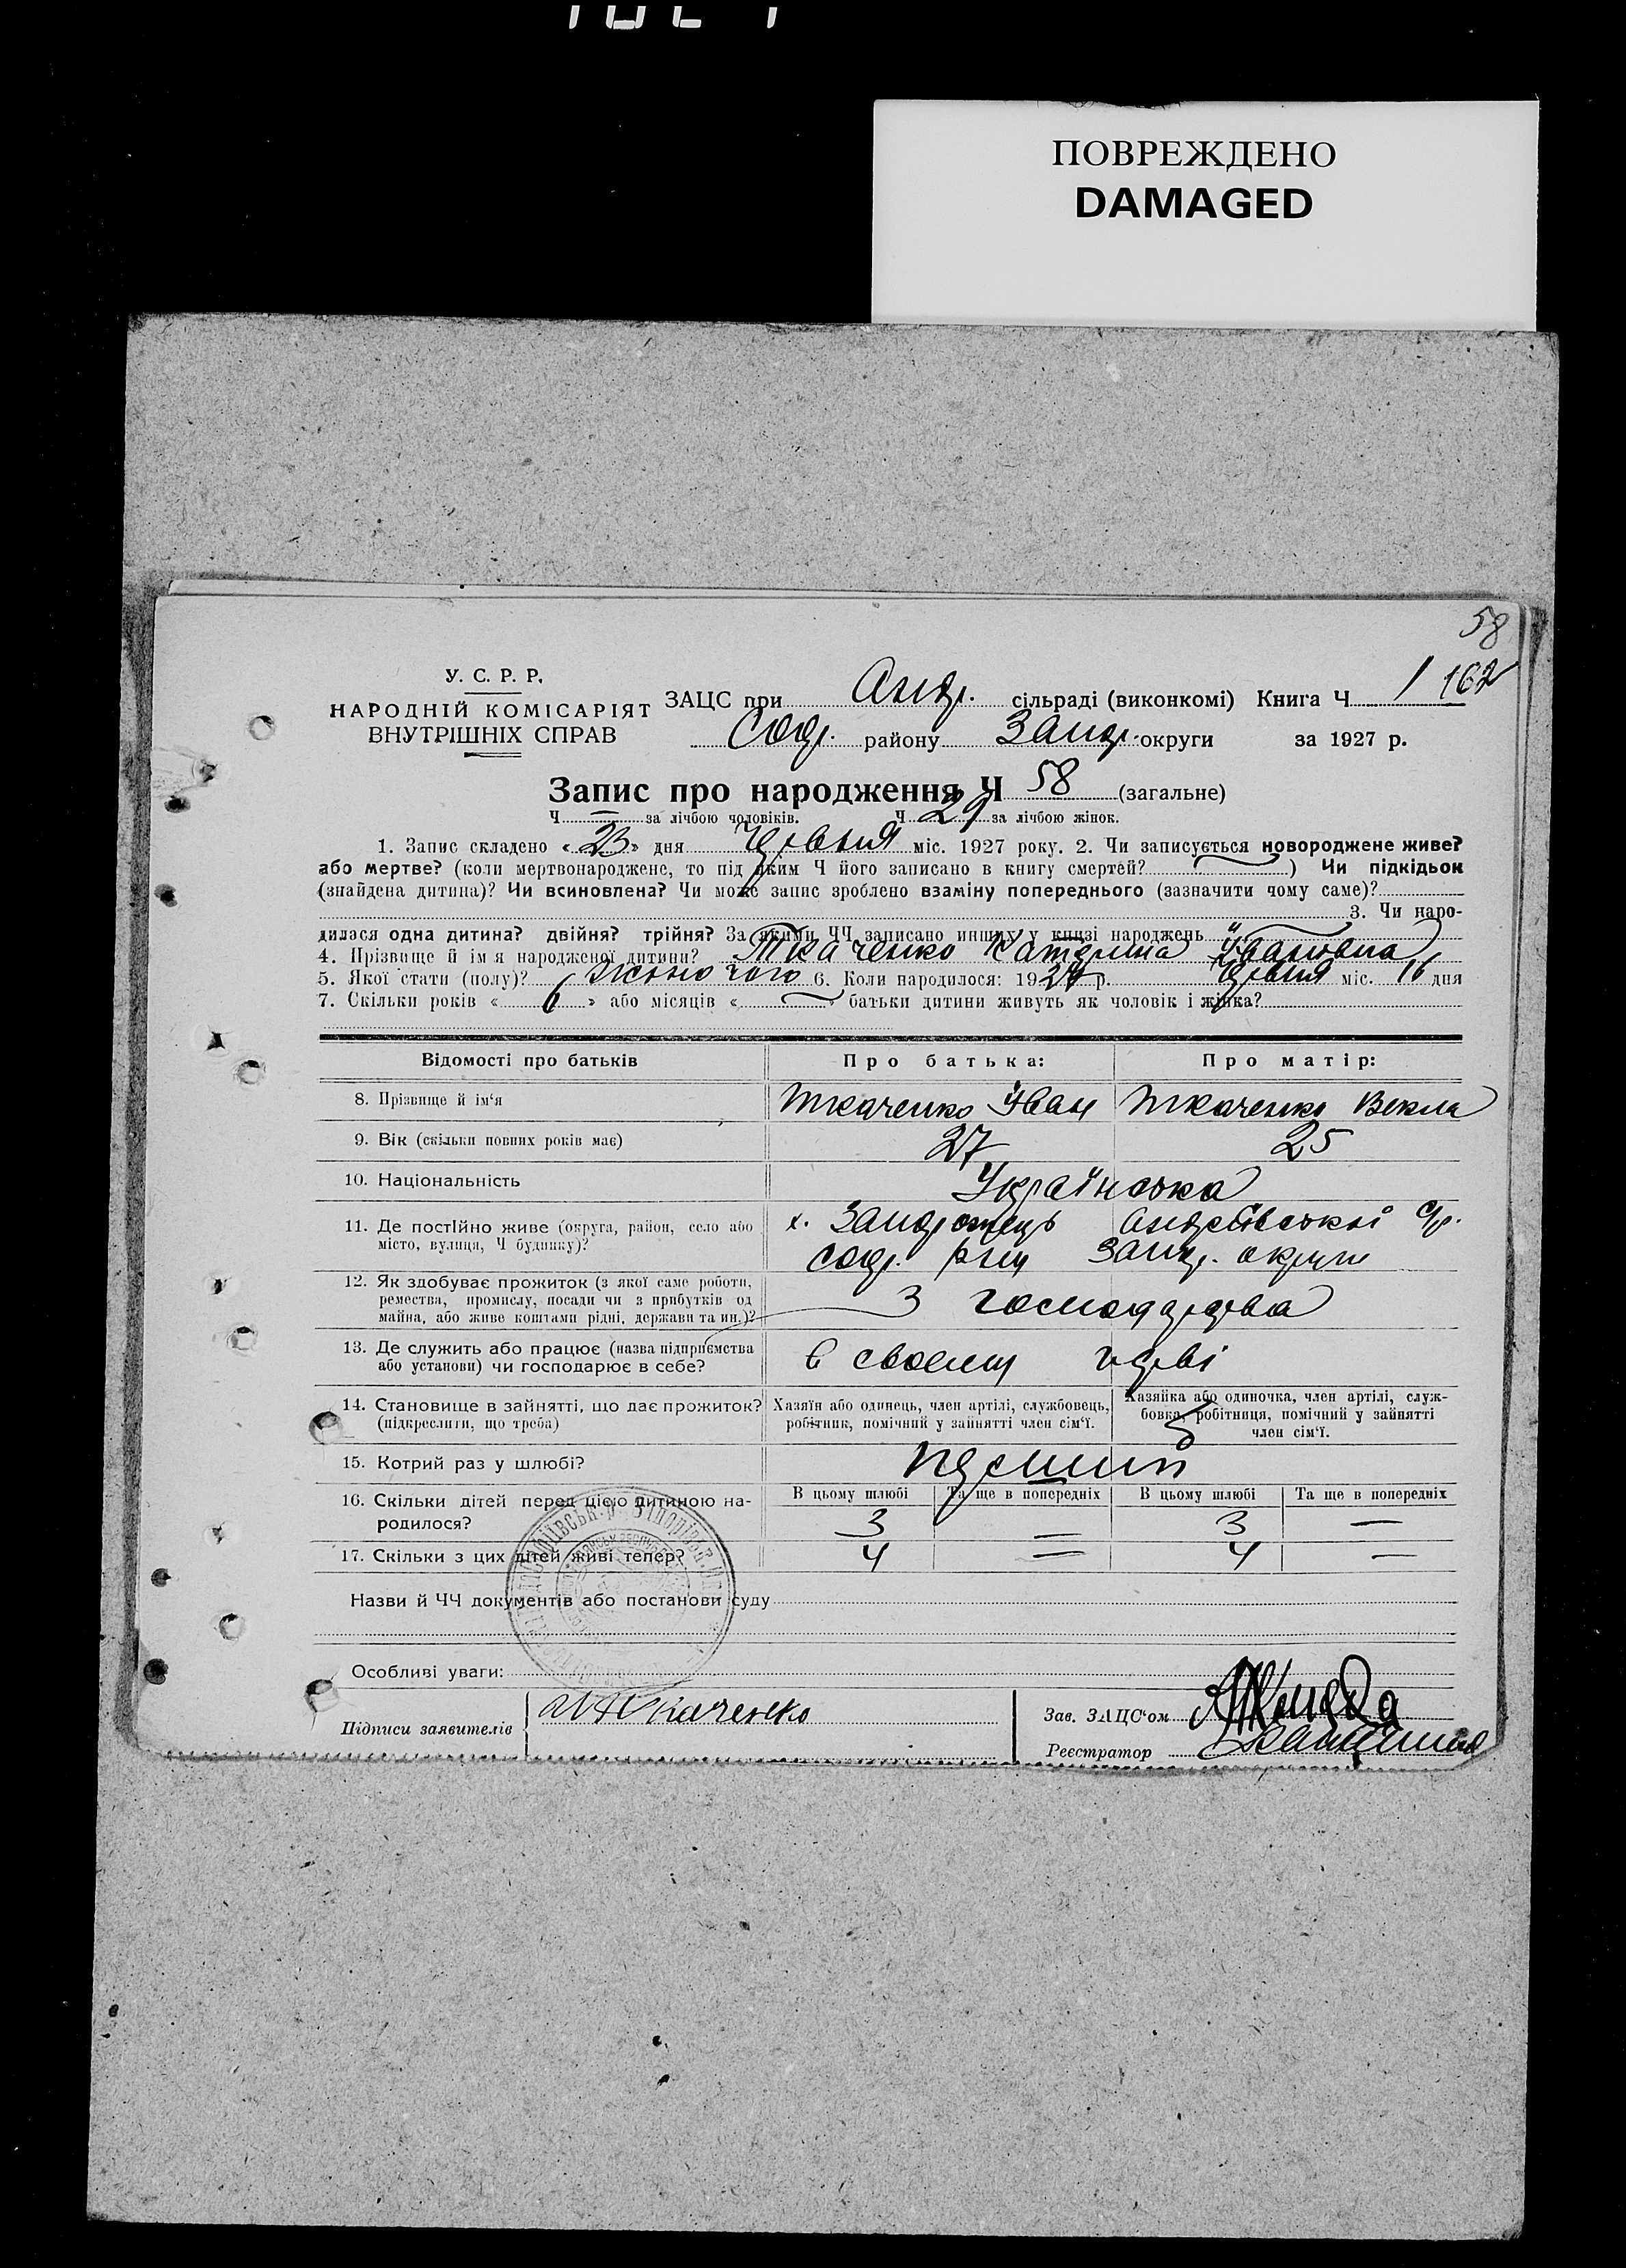 ПОВРЕЖДЕНО
DAMAGED
58
У. С. Р. Р.
НАРОДНІЙ КОМІСАРІЯТ
ВНУТРІШНІХ СПРАВ
ЗАЦС при Андр. сільраді (виконкомі) Книга Ч 1 162
Софр. району Запор. округи за 1927 р.
Запис про народження Ч 58 (загальне)
Ч — за лічбою чоловіків. Ч 29 за лічбою жінок.
1. Запис складено «23» дня Червня міс. 1927 року. 2. Чи записується новороджене живе?
або мертве? (коли мертвонароджене, то під яким Ч його записано в книгу смертей? ) Чи підкідьок
(знайдена дитина)? Чи всиновлена? Чи може запис зроблено взаміну попереднього (зазначити чому саме)?
3. Чи наро-
дилася одна дитина? двійня? трійня? За якими ЧЧ записано инших у книзі народжень
4. Прізвище й ім'я народженої дитини? Ткаченко Катерина Івановна
5. Якої стати (полу)? Жіночого 6. Коли народилося: 1927 р. Червня міс. 16 дня
7. Скільки років « 6 » або місяців « — » батьки дитини живуть як чоловік і жінка?
Відомості про батьків Про батька: Про матір:
8. Прізвище й ім'я Ткаченко Іван Ткаченко Векла
9. Вік (скільки повних років має) 27 25
10. Національність Українська
11. Де постійно живе (округа, район, село або
місто, вулиця, Ч будинку)?
х. Запорожець Андріївської с/р.
Софр. р-ну Запор. округи
12. Як здобуває прожиток (з якої саме роботи,
ремества, промислу, посади чи з прибутків од
майна, або живе коштами рідні, держави та ин.)?
З господарства
13. Де служить або працює (назва підприємства
або установи) чи господарює в себе?
в своему
14. Становище в зайнятті, що дає прожиток?
(підкреслити, що треба)
Хазяїн або одинець, член артілі, службовець,
робітник, помічний у зайнятті член сім'ї.
Хазяйка або одиночка, член артілі, служ-
бовка, робітниця, помічний у зайнятті
член сім'ї.
15. Котрий раз у шлюбі?
16. Скільки дітей перед цією дитиною на-
родилося?
В цьому шлюбі Та ще в попередніх В цьому шлюбі Та ще в попередніх
3 — 3 —
17. Скільки з цих дітей живі тепер? 4 — 4 —
Назви й ЧЧ документів або постанови суду
Особливі уваги:
Підписи заявителів Ткаченко
Зав. ЗАЦС'ом
Реєстратор